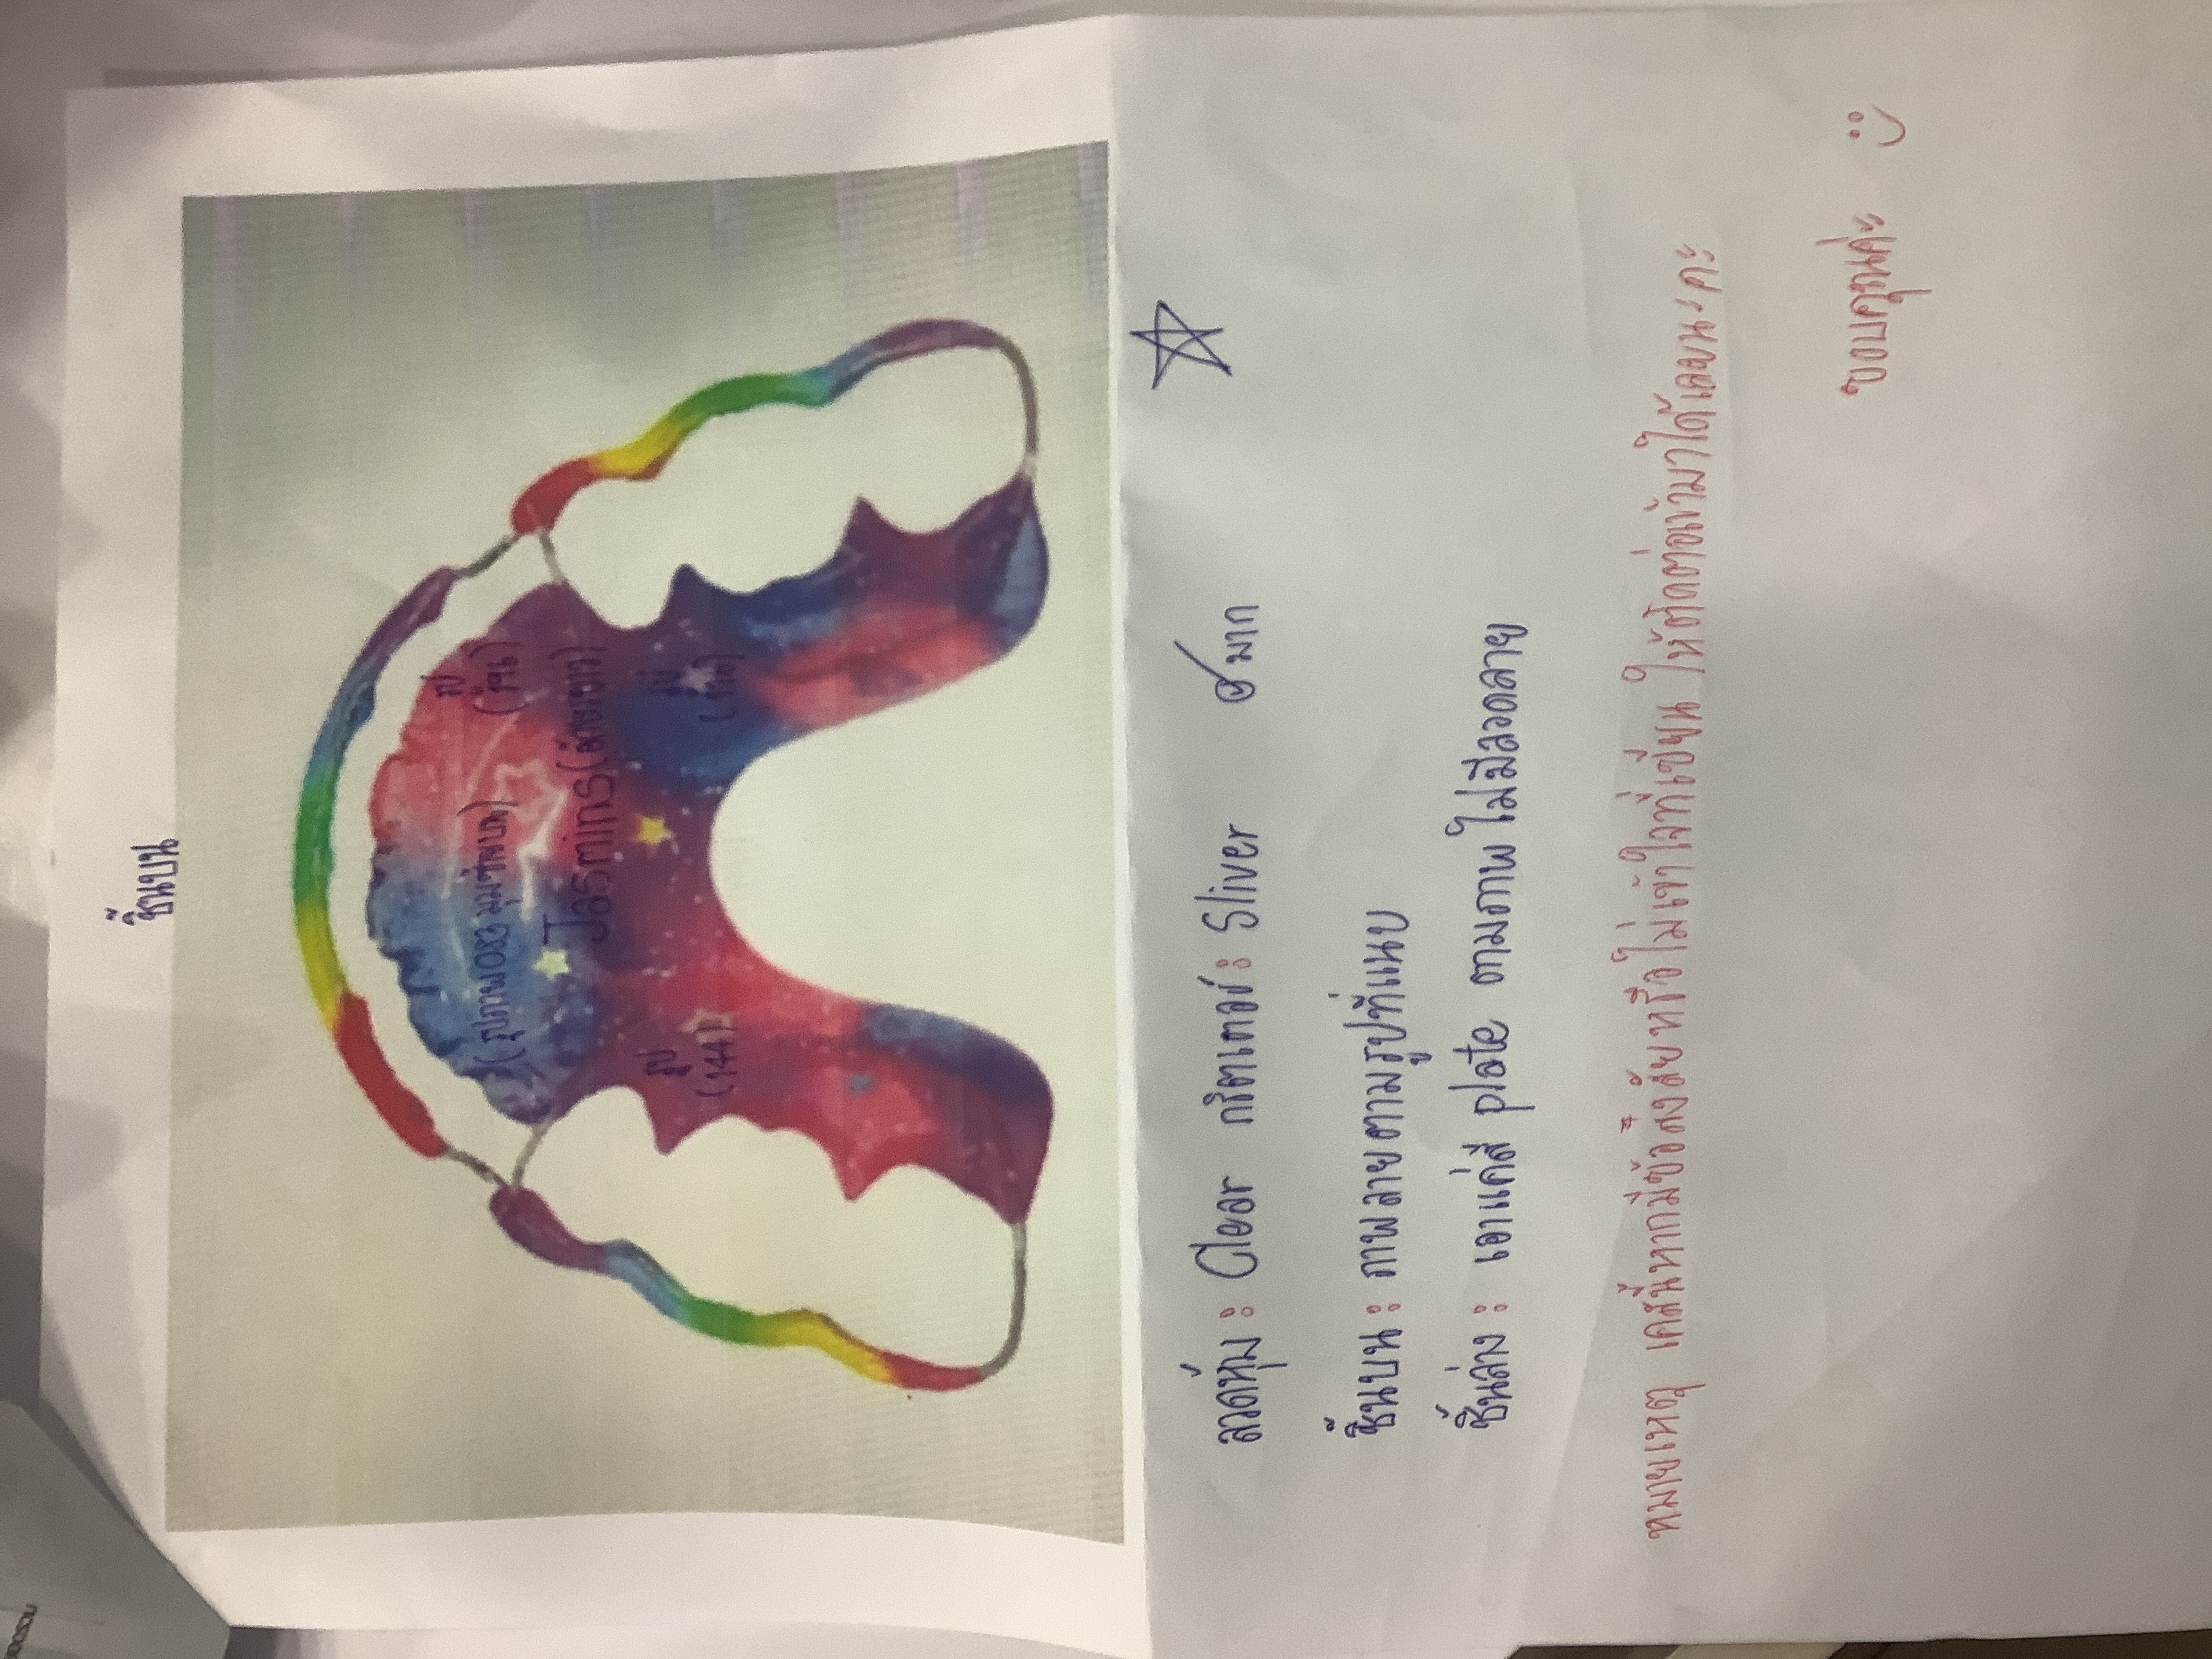 ชิ้นบน
(รูปภาพ 083 มุมซ้ายบน)
รูป
Jasmins
รูป
(144)
รูป
ลวดหุ้ม : Clear กริตเตอร์ : Sliver มาก
ชิ้นบน : ภาพลายตามรูปที่แนบ
ชิ้นล่าง : เอาแค่สี plate ตามภาพ ไม่มีลวดลาย
หมายเหตุ เคสนี้หากมีข้อสงสัยหรือไม่เข้าใจที่เขียน ให้ติดต่อเข้ามาได้เลยนะคะ
ขอบคุณค่ะ